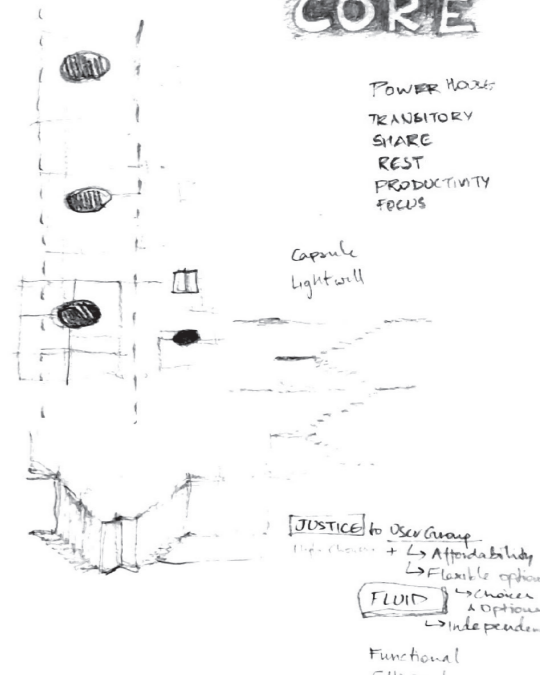 CORE
POWER HOUSE
TRANSITORY
SHARE
REST
PRODUCTIVITY
FOCUS
Capsule
Lightwell
JUSTICE to User Group
+ ↳ Affordability
↳ Flexible option
FLUID ↳ choices
& Options
↳ Independen
Functional